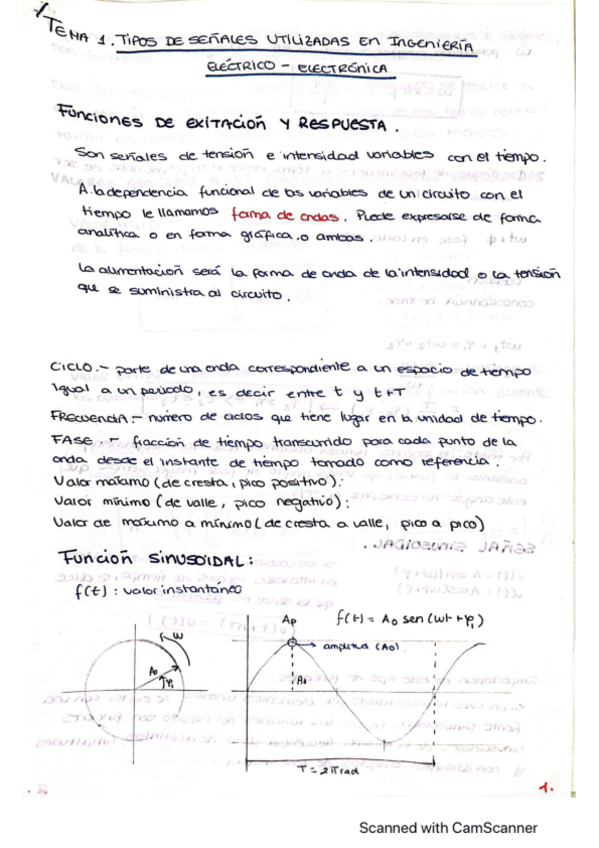 TEMA 1. TIPOS DE SEÑALES UTILIZADAS EN INGENIERÍA
ELÉCTRICO - ELECTRÓNICA
FUNCIONES DE EXITACIÓN Y RESPUESTA.
Son señales de tensión e intensidad variables con el tiempo.
A la dependencia funcional de las variables de un circuito con el
tiempo le llamamos forma de ondas. Puede expresarse de forma
analítica o en forma gráfica o ambas.
La alimentación será la forma de onda de la intensidad o la tensión
que se suministra al circuito.
CICLO.- parte de una onda correspondiente a un espacio de tiempo
igual a un periodo, es decir entre t y t+T
FRECUENCIA.- número de ciclos que tiene lugar en la unidad de tiempo.
FASE.- fracción de tiempo transcurrido para cada punto de la
onda desde el instante de tiempo tomado como referencia.
Valor máximo (de cresta, pico positivo):
Valor mínimo (de valle, pico negativo):
Valor de máximo a mínimo (de cresta a valle, pico a pico)
FUNCIÓN SINUSOIDAL:
f(t): valor instantáneo
w
A₀
φ₁
Ap
f(t) = A₀ sen (wt + φ₁)
amplitud (A₀)
T = 2π rad
1.
Scanned with CamScanner